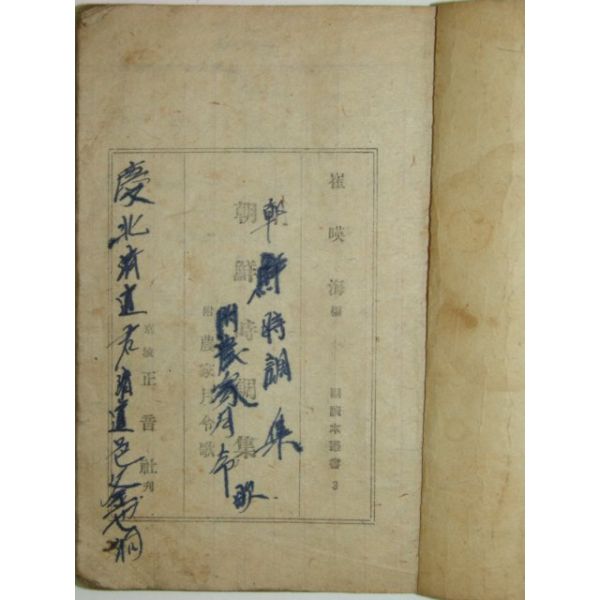 崔暎海編
國藏本叢書 3
朝鮮時調集
朝鮮時調集
附 農家月令歌
附農家月令歌
京城 正音社刊
慶北淸道君淸道邑